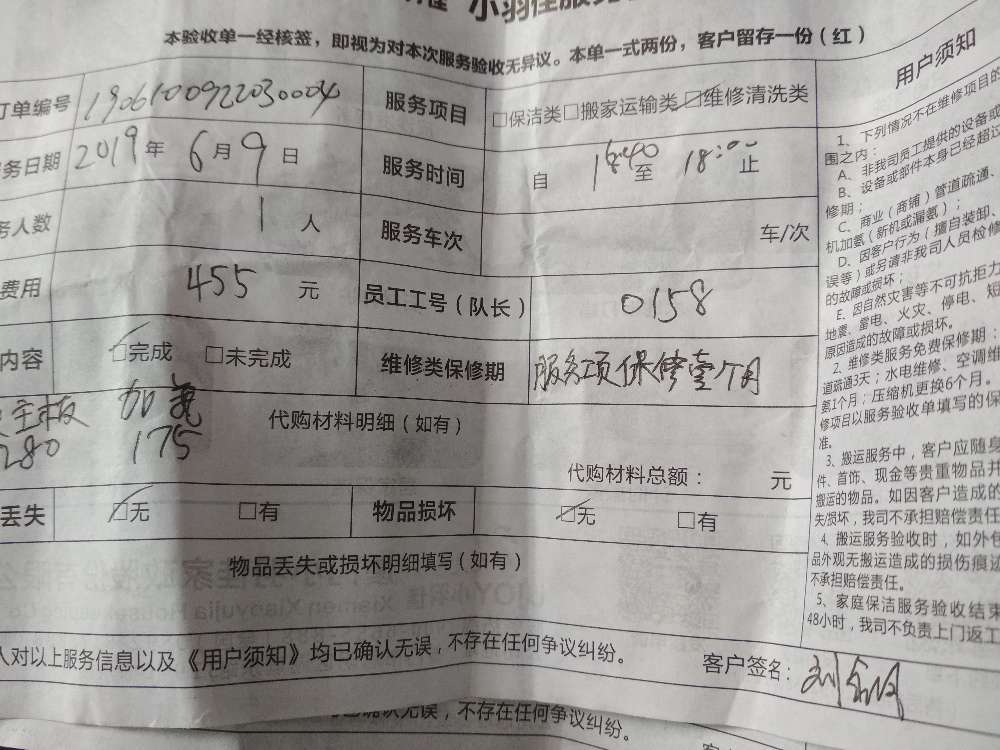 小羽佳服务
本验收单一经核签，即视为对本次服务验收无异议。本单一式两份，客户留存一份（红）
订单编号 1906100922030004 服务项目 □保洁类□搬家运输类☑维修清洗类
务日期 2019年6月9日 服务时间 自16:40至18:00止
务人数 1人 服务车次 车/次
费用 455元 员工工号（队长） 0158
内容 ☑完成 □未完成 维修类保修期 服务项保修壹个月
主板 加氟
280 175
代购材料明细（如有）
代购材料总额： 元
丢失 ☑无 □有 物品损坏 ☑无 □有
物品丢失或损坏明细填写（如有）
人对以上服务信息以及《用户须知》均已确认无误，不存在任何争议纠纷。 客户签名：
用户须知
1、下列情况不在维修项目的
围之内：
A、非我司员工提供的设备或
B、设备或部件本身已经超过
修期；
C、商业（商铺）管道疏通、
机加氨（新机或漏氨）；
D、因客户行为（擅自装卸、
误等）或另请非我司人员检修
的故障或损坏；
E、因自然灾害等不可抗拒力
地震、雷电、火灾、停电、短
原因造成的故障或损坏。
2、维修类服务免费保修期，
道疏通3天；水电维修、空调维
氨1个月；压缩机更换6个月。
修项目以服务验收单填写的保
准。
3、搬运服务中，客户应随身
件、首饰、现金等贵重物品并
搬运的物品。如因客户造成的
失/损坏，我司不承担赔偿责任
4、搬运服务验收时，如外包
品外观无搬运造成的损伤痕迹
不承担赔偿责任。
5、家庭保洁服务验收结束
48小时，我司不负责上门返工
确认无误，不存在任何争议纠纷。